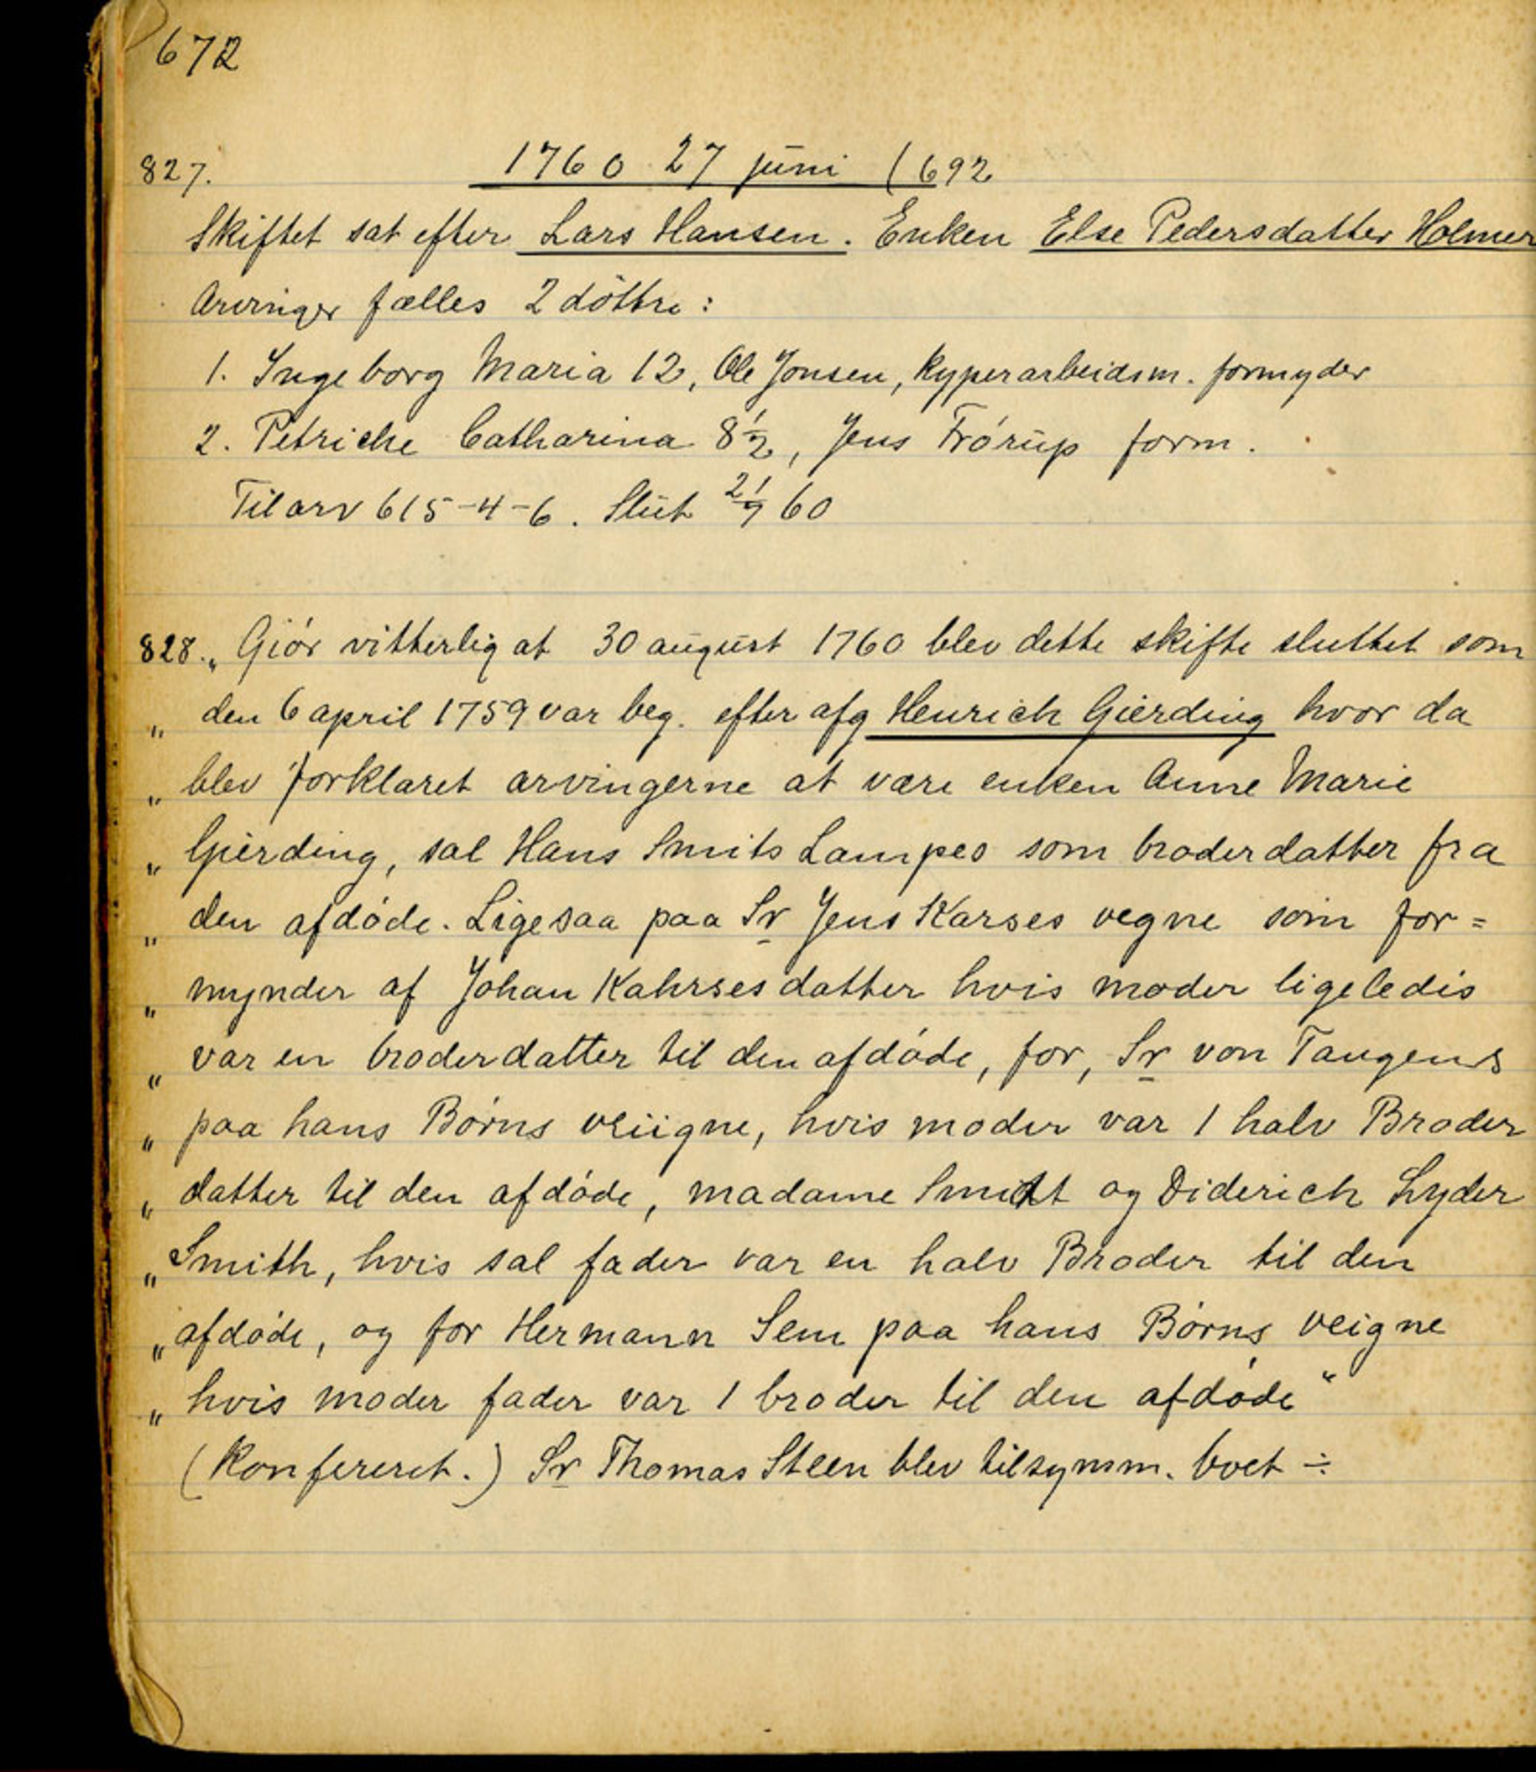 672
827. 1760 27 juni (692
Skiftet sat efter Lars Hansen. Enken Else Pedersdatter Holmer
Arvinger fælles 2 döttre:
1. Ingeborg Maria 12, Ole Jonsen, kyperarbeidsm. formyder
2. Petriche Catharina 8½, Jens Frórup form.
Til arv 615-4-6. Slut 21/7 60
828. „ Giór vitterlig at 30 august 1760 blev dette skifte sluttet som
„ den 6 april 1759 var beg. efter afg Henrich Gierding hvor da
„ blev forklaret arvingerne at være enken Anne Marie
„ Gierding, sal Hans Smits Lampes som broderdatter fra
„ den afdóde. Ligesaa paa Sr Jens Karses vegne som for=
„ mynder af Johan Kahrses datter hvis moder ligeledis
„ var en broderdatter til den afdóde, for, Sr von Tangens
„ paa hans Börns veiigne, hvis moder var 1 halv Broder
„ datter til den afdóde, madame Smidt og Diderich Lyder
„ Smith, hvis sal fader var en halv Broder til den
„ afdóde, og for Hermann Sem paa hans Börns veigne
„ hvis moder fader var 1 broder til den afdóde“
(Konfereret.) Sr Thomas Steen blev tilsynsm. boet ÷